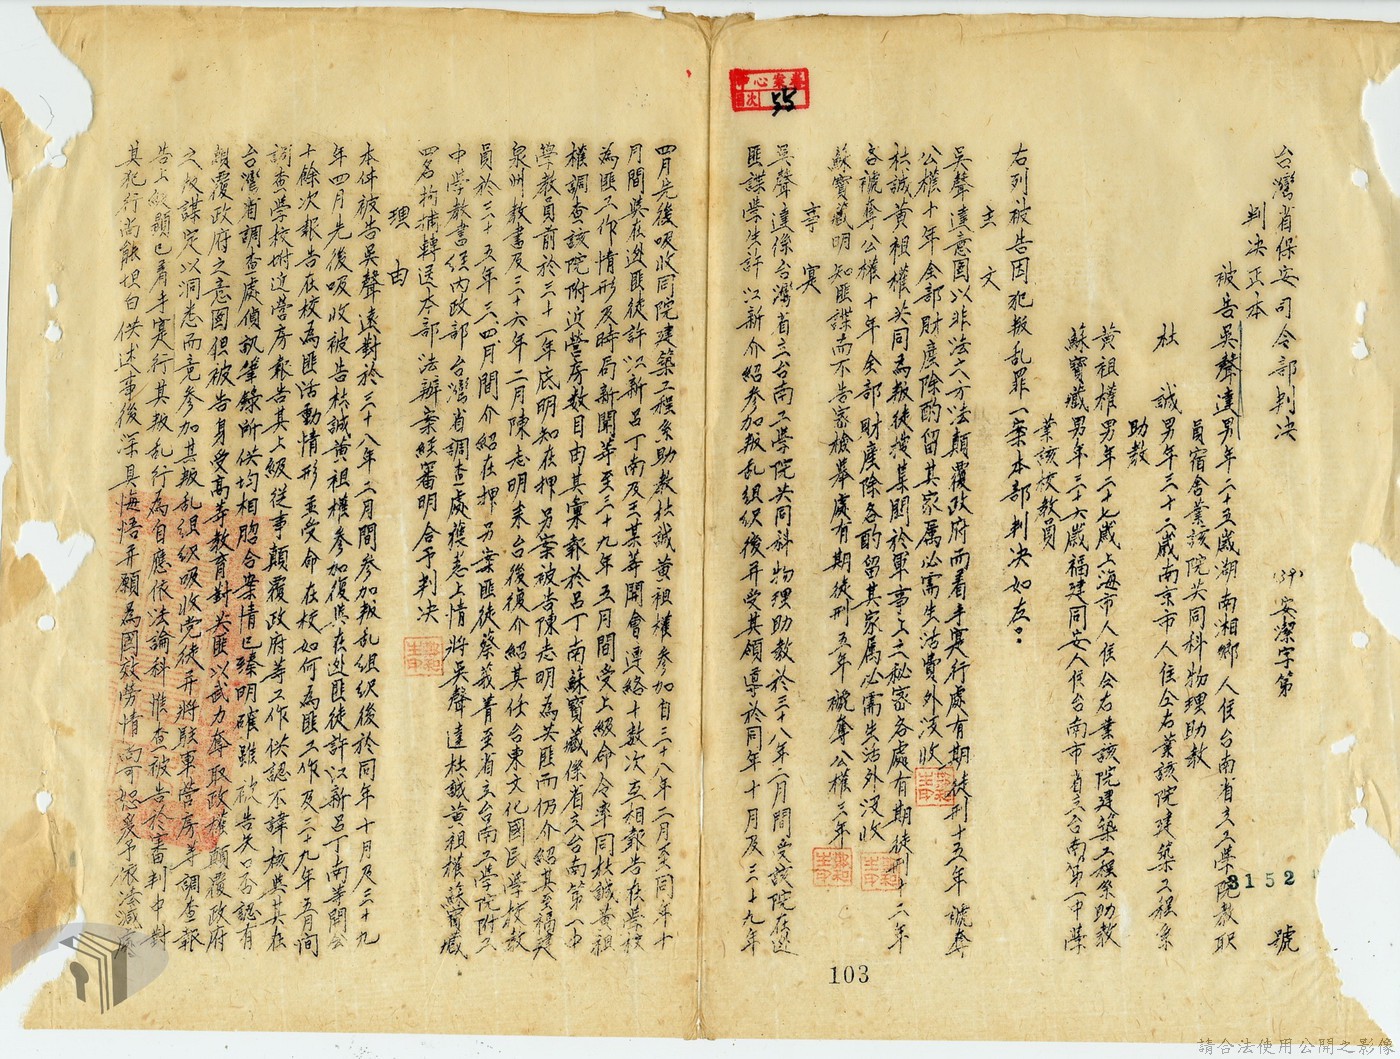 台灣省保安司令部判決
(39)安潔字第3152號
判決正本
被告吳聲達男年二十五歲湖南湘鄉人住台南省立工學院教職
員宿舍業該院共同科物理助教
杜誠男年三十二歲南京市人住仝右業該院建築工程系
助教
黃祖權男年二十七歲上海市人住仝右業該院建築工程系助教
蘇寶藏男年三十六歲福建同安人住台南市省立台南第一中學
業該校教員
右列被告因犯叛乱罪一案本部判决如左：
主文
吳聲達意圖以非法之方法顛覆政府而着手寔行處有期徒刑十五年褫奪
公權十年全部財產除酌留其家属必需生活費外沒收
杜誠黃祖權共同為叛徒搜集關於軍事上之秘密各處有期徒刑十二年
各褫奪公權十年全部財產除各酌留其家属必需生活外沒收
蘇寶藏明知匪諜而不告密檢舉處有期徒刑五年褫奪公權三年
事寔
吳聲達係台灣省立台南工學院共同科物理助教於三十八年二月間受該院在逃
匪諜學生許以新介紹參加叛乱組织後并受其領導於同年十月及三十九年
四月先後吸收同院建築工程系助教杜誠黃祖權參加自三十八年二月至同年十
月間與在逃匪徒許以新呂丁南及王某等開會連絡十数次互相報告在學校
為匪工作情形及時局新聞等至三十九年五月間受上級命令率同杜誠黃祖
權調查該院附近營房数目由其彙報於呂丁南蘇寶藏係省立台南第一中
學教員前於三十一年底明知在押另案被告陳志明為共匪而仍介紹其至福建
泉州教書及三十六年二月陳志明来台後復介紹其任台東文化國民學校教
員於三十五年三、四月間介紹在押另案匪徒蔡莪菁至省立台南工學院附工
中學教書経内政部台灣省調查處獲悉上情將吳聲達杜誠黃祖權蘇寶藏
四名拘捕轉送本部法辦案經審明合予判决
理由
本件被告吳聲達對於三十八年二月間參加叛乱組织後於同年十月及三十九
年四月先後吸收被告杜誠黃祖權參加復與在逃匪徒許以新呂丁南等開会
十餘次報告在校為匪活動情形並受命在校如何為匪工作及三十九年五月間
調查學校附近營房報告其上級従事顛覆政府等工作供認不諱核與其在
台灣省調查處偵訊筆錄所供均相脗合案情已臻明確雖被告矢口否認有
顛覆政府之意圖但被告身受高等教育對共匪以武力奪取政權顛覆政府
之叛謀定以洞悉而竟參加其叛乱組织吸收党徒并將駐軍營房等調查報
告上級顯已着手寔行其叛乱行為自應依法論科惟查被告於審判中對
其犯行尚能坦白供述事後深具悔悟并願為國效勞情尚可恕爰予依法減處
中心業業
目次 55
103
請合法使用公開之影像